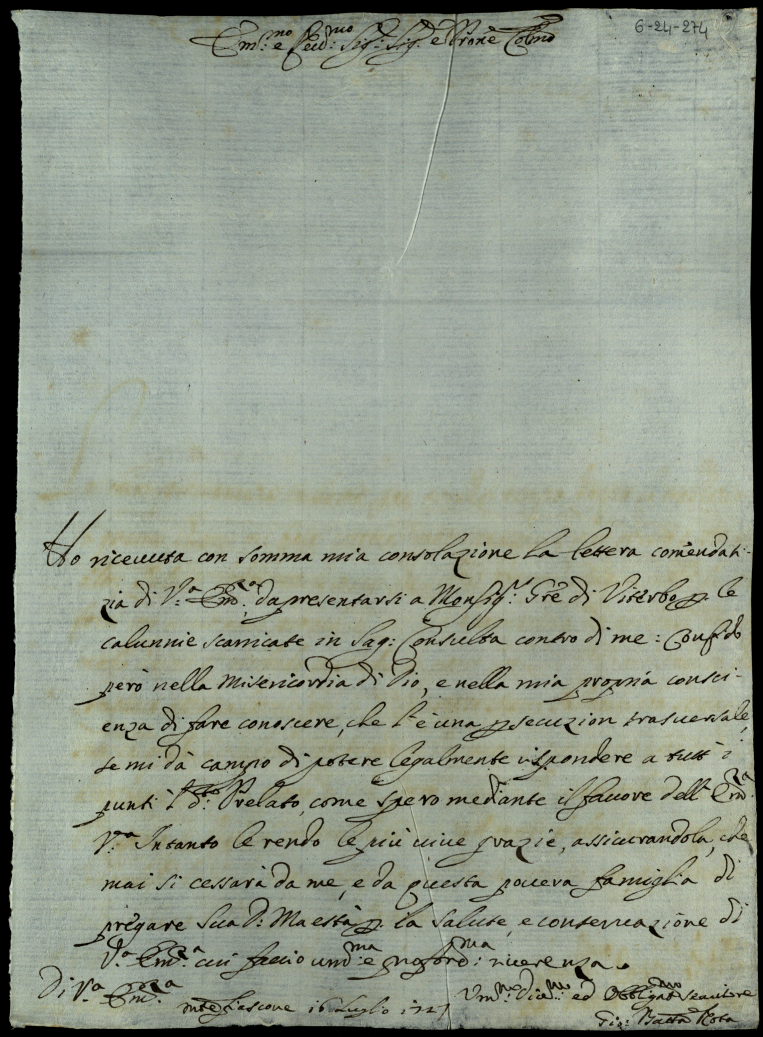 6-24-274
Em.mo e Rev.mo Sig.r Sig.r e Prone Colmo
Ho riceuuta con somma mia consolazione la lettera comendati-
zia di V.a Em.a da presentarsi a Monsig.r Gre di Viterbo p. le
calunnie scarricate in Sag: Consulta contro di me: Confido
però nella Misericordia di Dio, e nella mia propria consci-
enza di fare conoscere, che l'è una psecuzion trasuersale,
se mi dà campo di potere legalmente rispondere a tutti i
punti l' d.tto Prelato, come spero mediante il fauore dell' Em.a
V.a Intanto le rendo le più uiue grazie, assicurandola, che
mai si cessarà da me, e da questa pouera famiglia di
pregare Sua D. Maestà p. la salute, e conseruazione di
V.a Em.a cui faccio um.ma e profond.ma riuerenza
Di V.a Em.a
Montefiascone 16 Luglio 1727
Um.mo Diu.mo ed Obbligmo Seruitore
Gio: Batta Rota